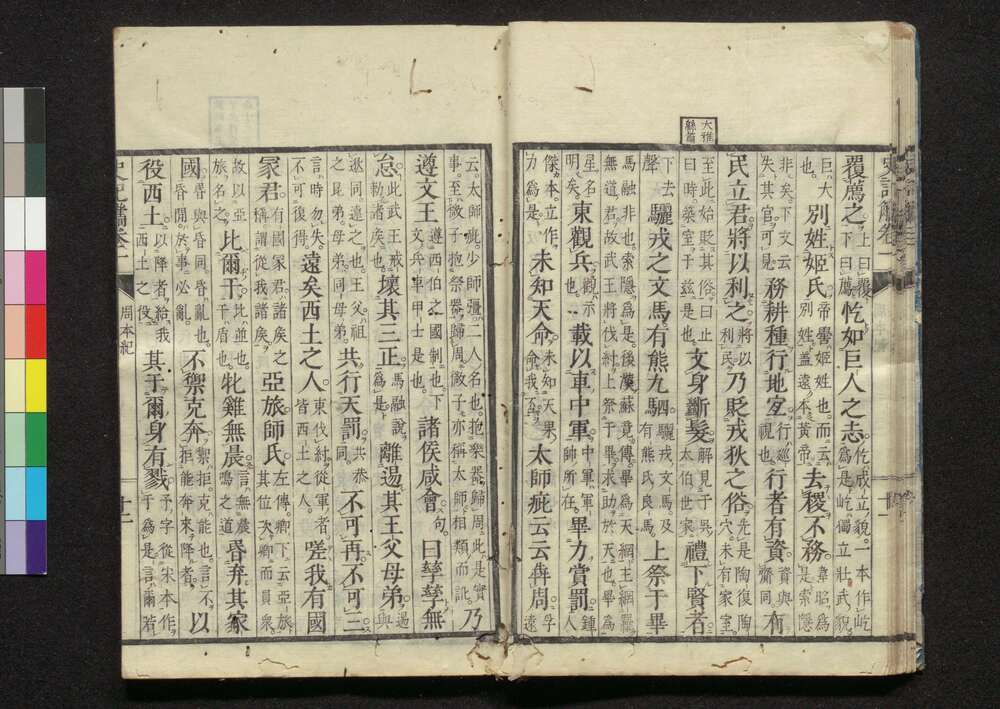 大雅緜篇
覆薦之上曰覆下曰薦忔如巨人之志忔成立貌一本作屹爲是屹獨立壯武貌
巨大也別姓姬氏帝嚳姬姓也而云別姓蓋遠本黃帝去稷不務韋昭爲是索隱
非矣下文云失其官可見務耕種行地宜行巡視也行者有資資與齎同有
民立君將以利之將以利民乃貶戎狄之俗先是陶復陶穴未有家室
至此始貶其俗曰止曰時築室于玆是也文身斷髮解見于吳太伯世家禮下賢者
下去聲驪戎之文馬有熊九駟驪戎文馬及有熊民良馬上祭于畢
馬融非也索隱爲是後漢蘇竟傳畢爲天網主網羅無道君故武王將伐紂上祭于畢求助於天也畢爲
星名明矣東觀兵觀示也載以車中軍中軍軍帥所在畢力賞罰鍾人
傑本立作力爲是未知天命未知天果命我不太師疵云云犇周孚遠
云太師疵少師彊二人名也抱樂器歸周此是實事至微子抱祭器歸周微子亦稱太師相類而訛乃
遵文王遵西伯之國制也下文兵車甲士是也諸侯咸會句曰孳孳無
怠此武王戒勑諸矦也壞其三正馬融說爲是離逷其王父母弟逷與
逖同遠之也王父祖之昆弟母弟同母弟共行天罰共恭同不可再不可三
言時勿失不可復得遠矣西土之人東伐紂從軍者皆西土之人嗟我有國
冢君有國冢君諸矦之稱謂從我諸矦亞旅師氏左傳卿下云亞旅其位次卿而員衆
故以亞旅名之比爾干比並也干盾也牝雞無晨言無晨鳴之道昬弃其家
國昬與昏同昏亂也昏閉於事必亂不禦克奔禦拒克能也言不拒能奔來降者以
役西土以降者給我西土之役其于爾身有戮于字從宋本作于爲是言爾若
周本紀
十二